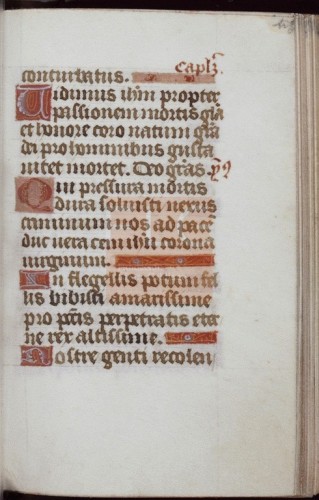 capl̃z.
conturbatus.
Vidimus ihm̃ propter
passionem mortis gl̃a
et honore coro natum gr̃a
dei pro hominibus gusta
uitet mortet. Deo gr̃as.
Qui pressura mortis
dura soluisti nexus
caminum nos ad pacẽ
duc uera cem ihũ corona
uirginum.
In flegellis potum fel
lis bibisti amarissime
pro pctĩs perpetratis eter
ne rex altissime.
Nostre genti recolen